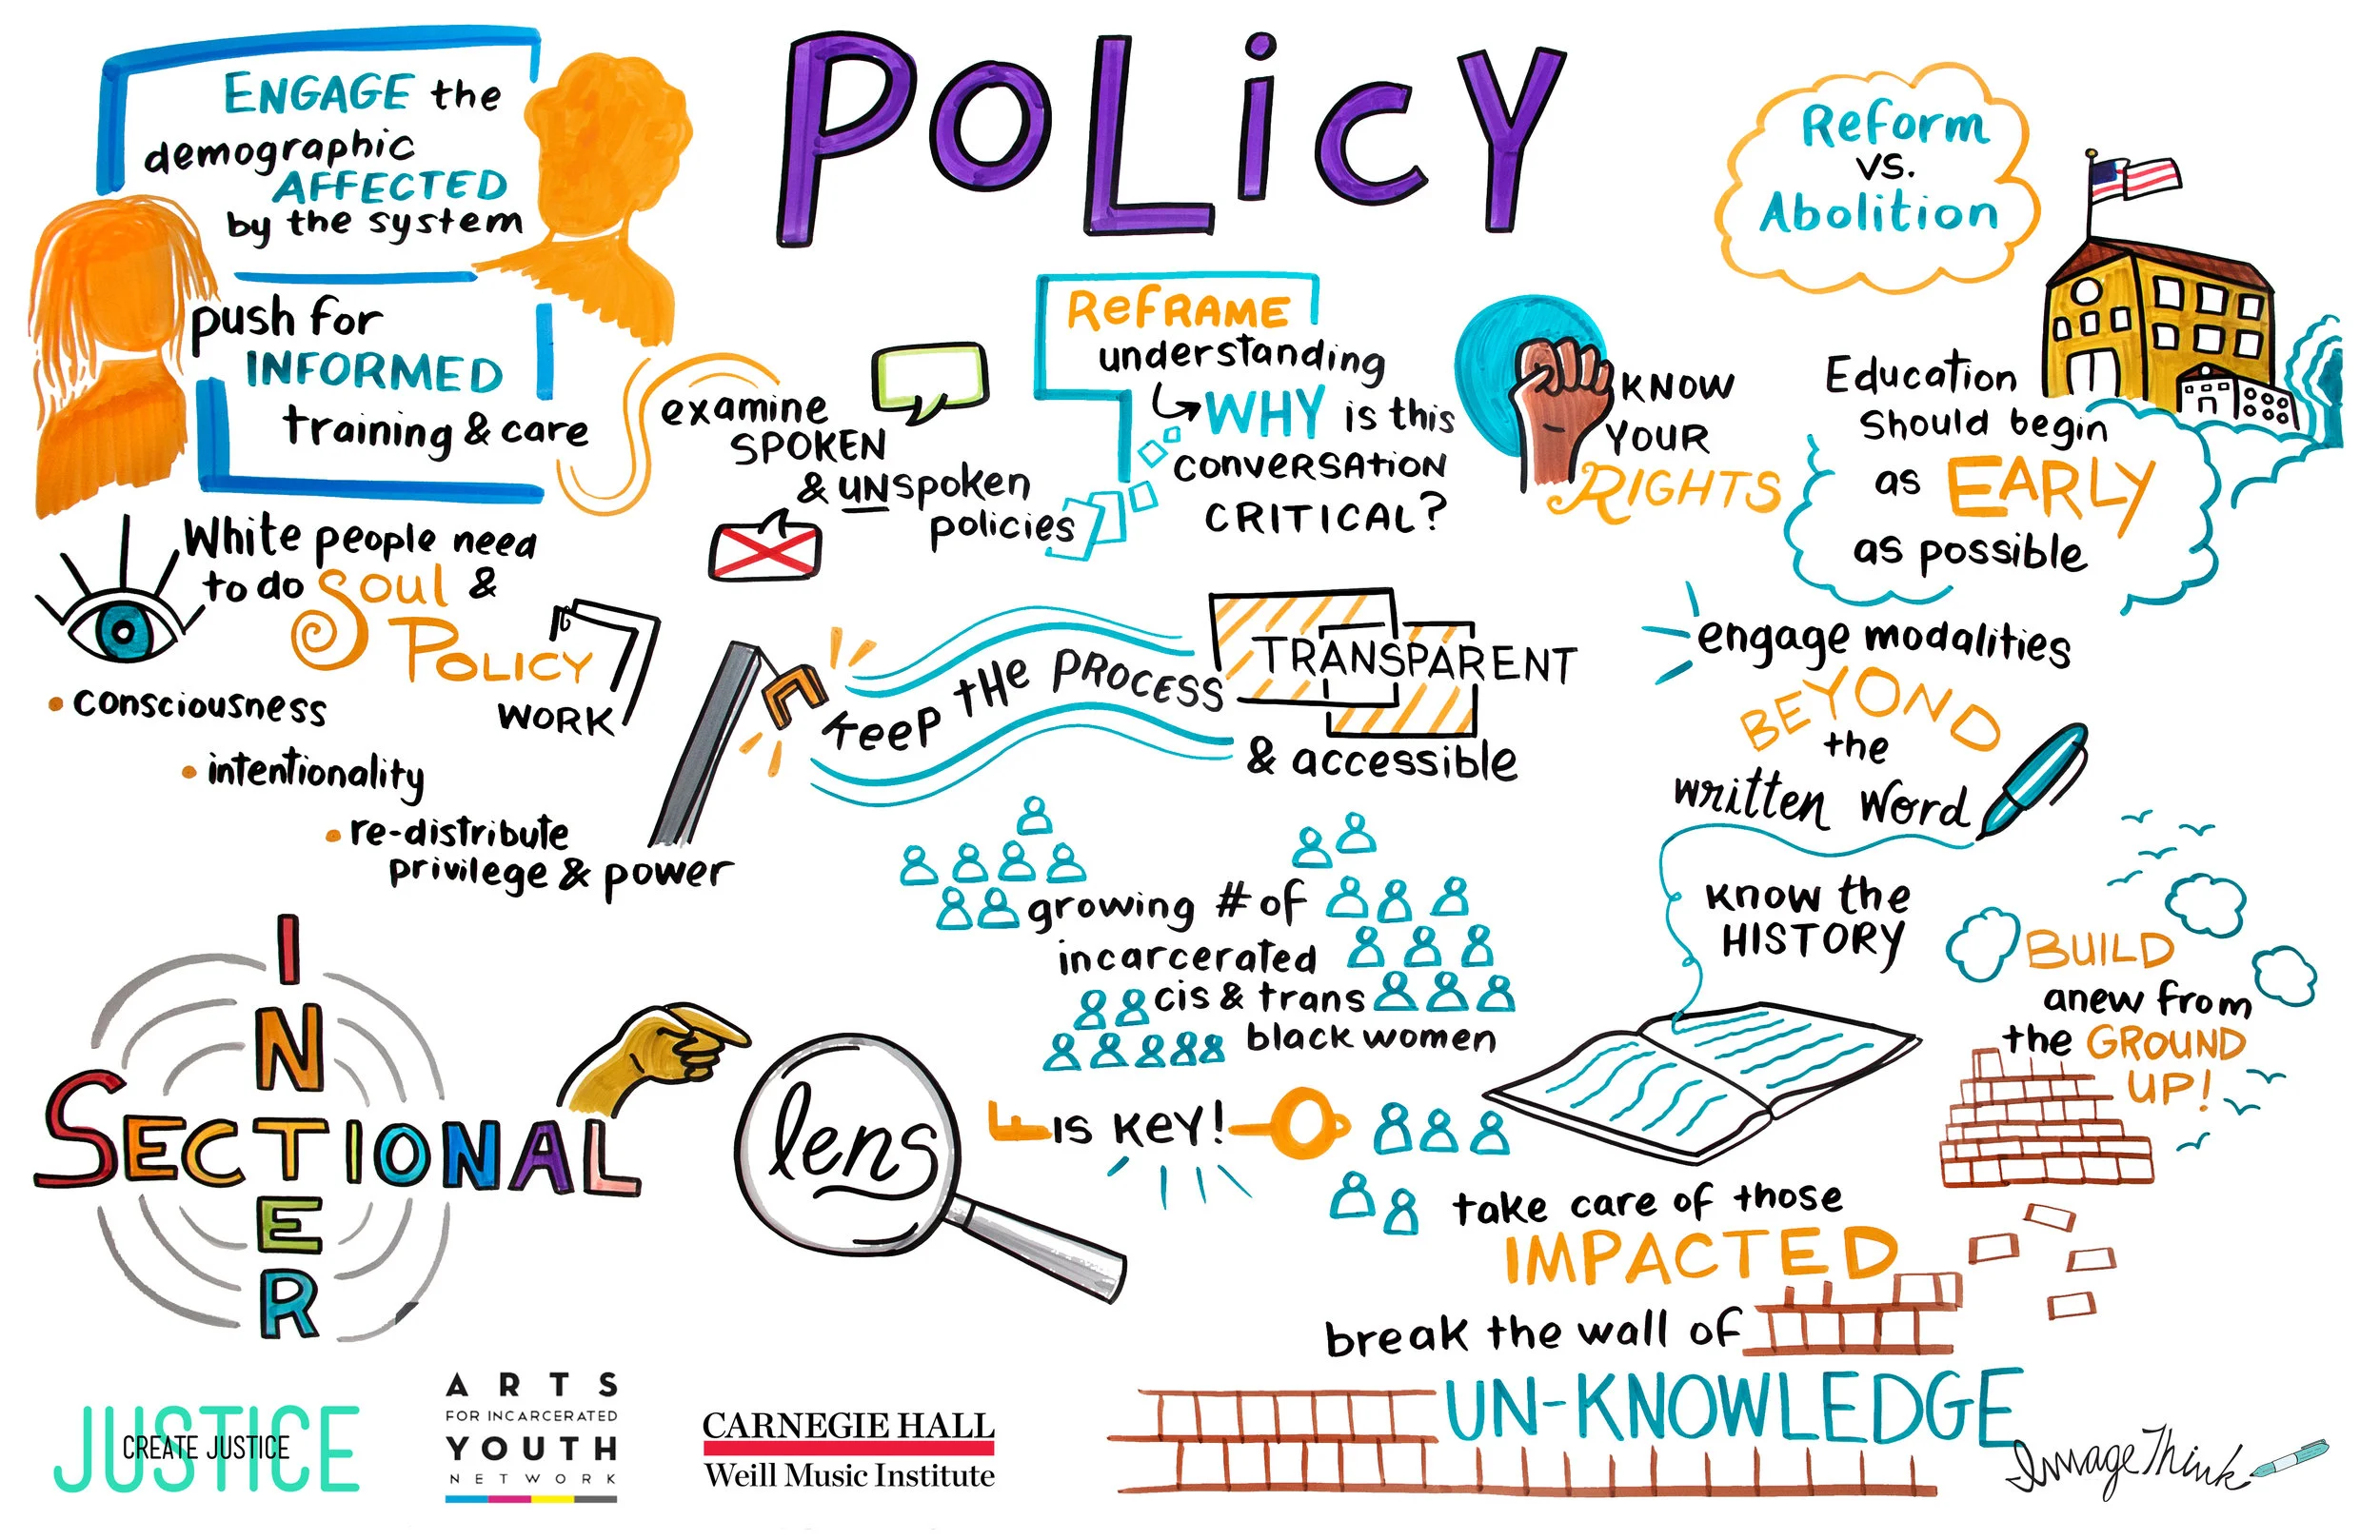 POLiCY
ENGAGE the
demographic
AFFECTED
by the system
push for
INFORMED
training & care
examine
SPOKEN
& UNspoken
policies
REFRAME
understanding
WHY is this
CONVERSATION
CRITICAL?
KNOW
YOUR
RIGHTS
Reform
vs.
Abolition
Education
Should begin
as EARLY
as possible
White people need
to do Soul &
POLICY
WORK
• consciousness
• intentionality
• re-distribute
privilege & power
KEEP tHe PROCESS
TRANSPARENT
& accessible
engage modalities
BEYOND
the
written word
know the
HISTORY
BUILD
anew from
the GROUND
UP!
growing # of
incarcerated
cis & trans
black women
INTER
SECTIONAL
lens
IS KEY!
take care of those
IMPACTED
break the wall of
UN-KNOWLEDGE
JUSTICE
CREATE JUSTICE
ARTS
FOR INCARCERATED
YOUTH
NETWORK
CARNEGIE HALL
Weill Music Institute
ImageThink